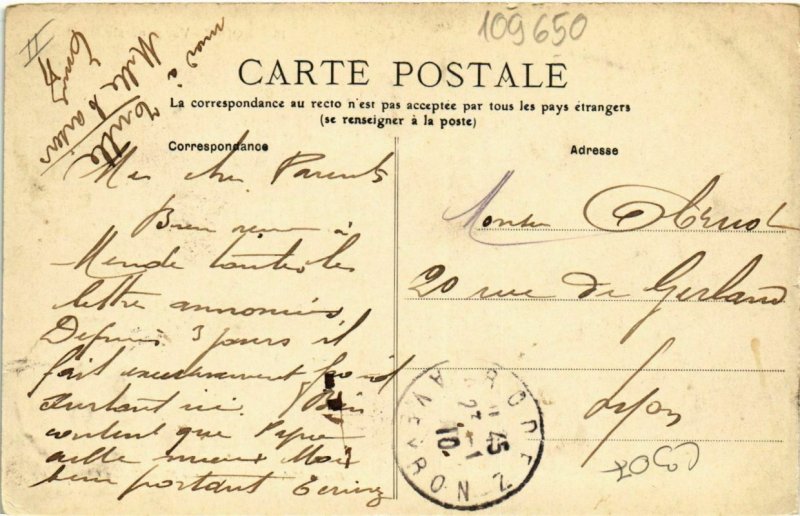 109650
II
CARTE POSTALE
La correspondance au recto n'est pas acceptée par tous les pays étrangers
(se renseigner à la poste)
Correspondance
Adresse
Mes chers Parents
Bien reçu à
Mende toutes les
lettre annoncées
Depuis 3 jours il
fait excessivement froid
surtout ici. Bien
content que Papa
aille mieux Moi
bien portant Ecrivez
moi à
Mille baisers
20 rue de Gerland
Lyon
RODEZ
AVEYRON
45
10
C307